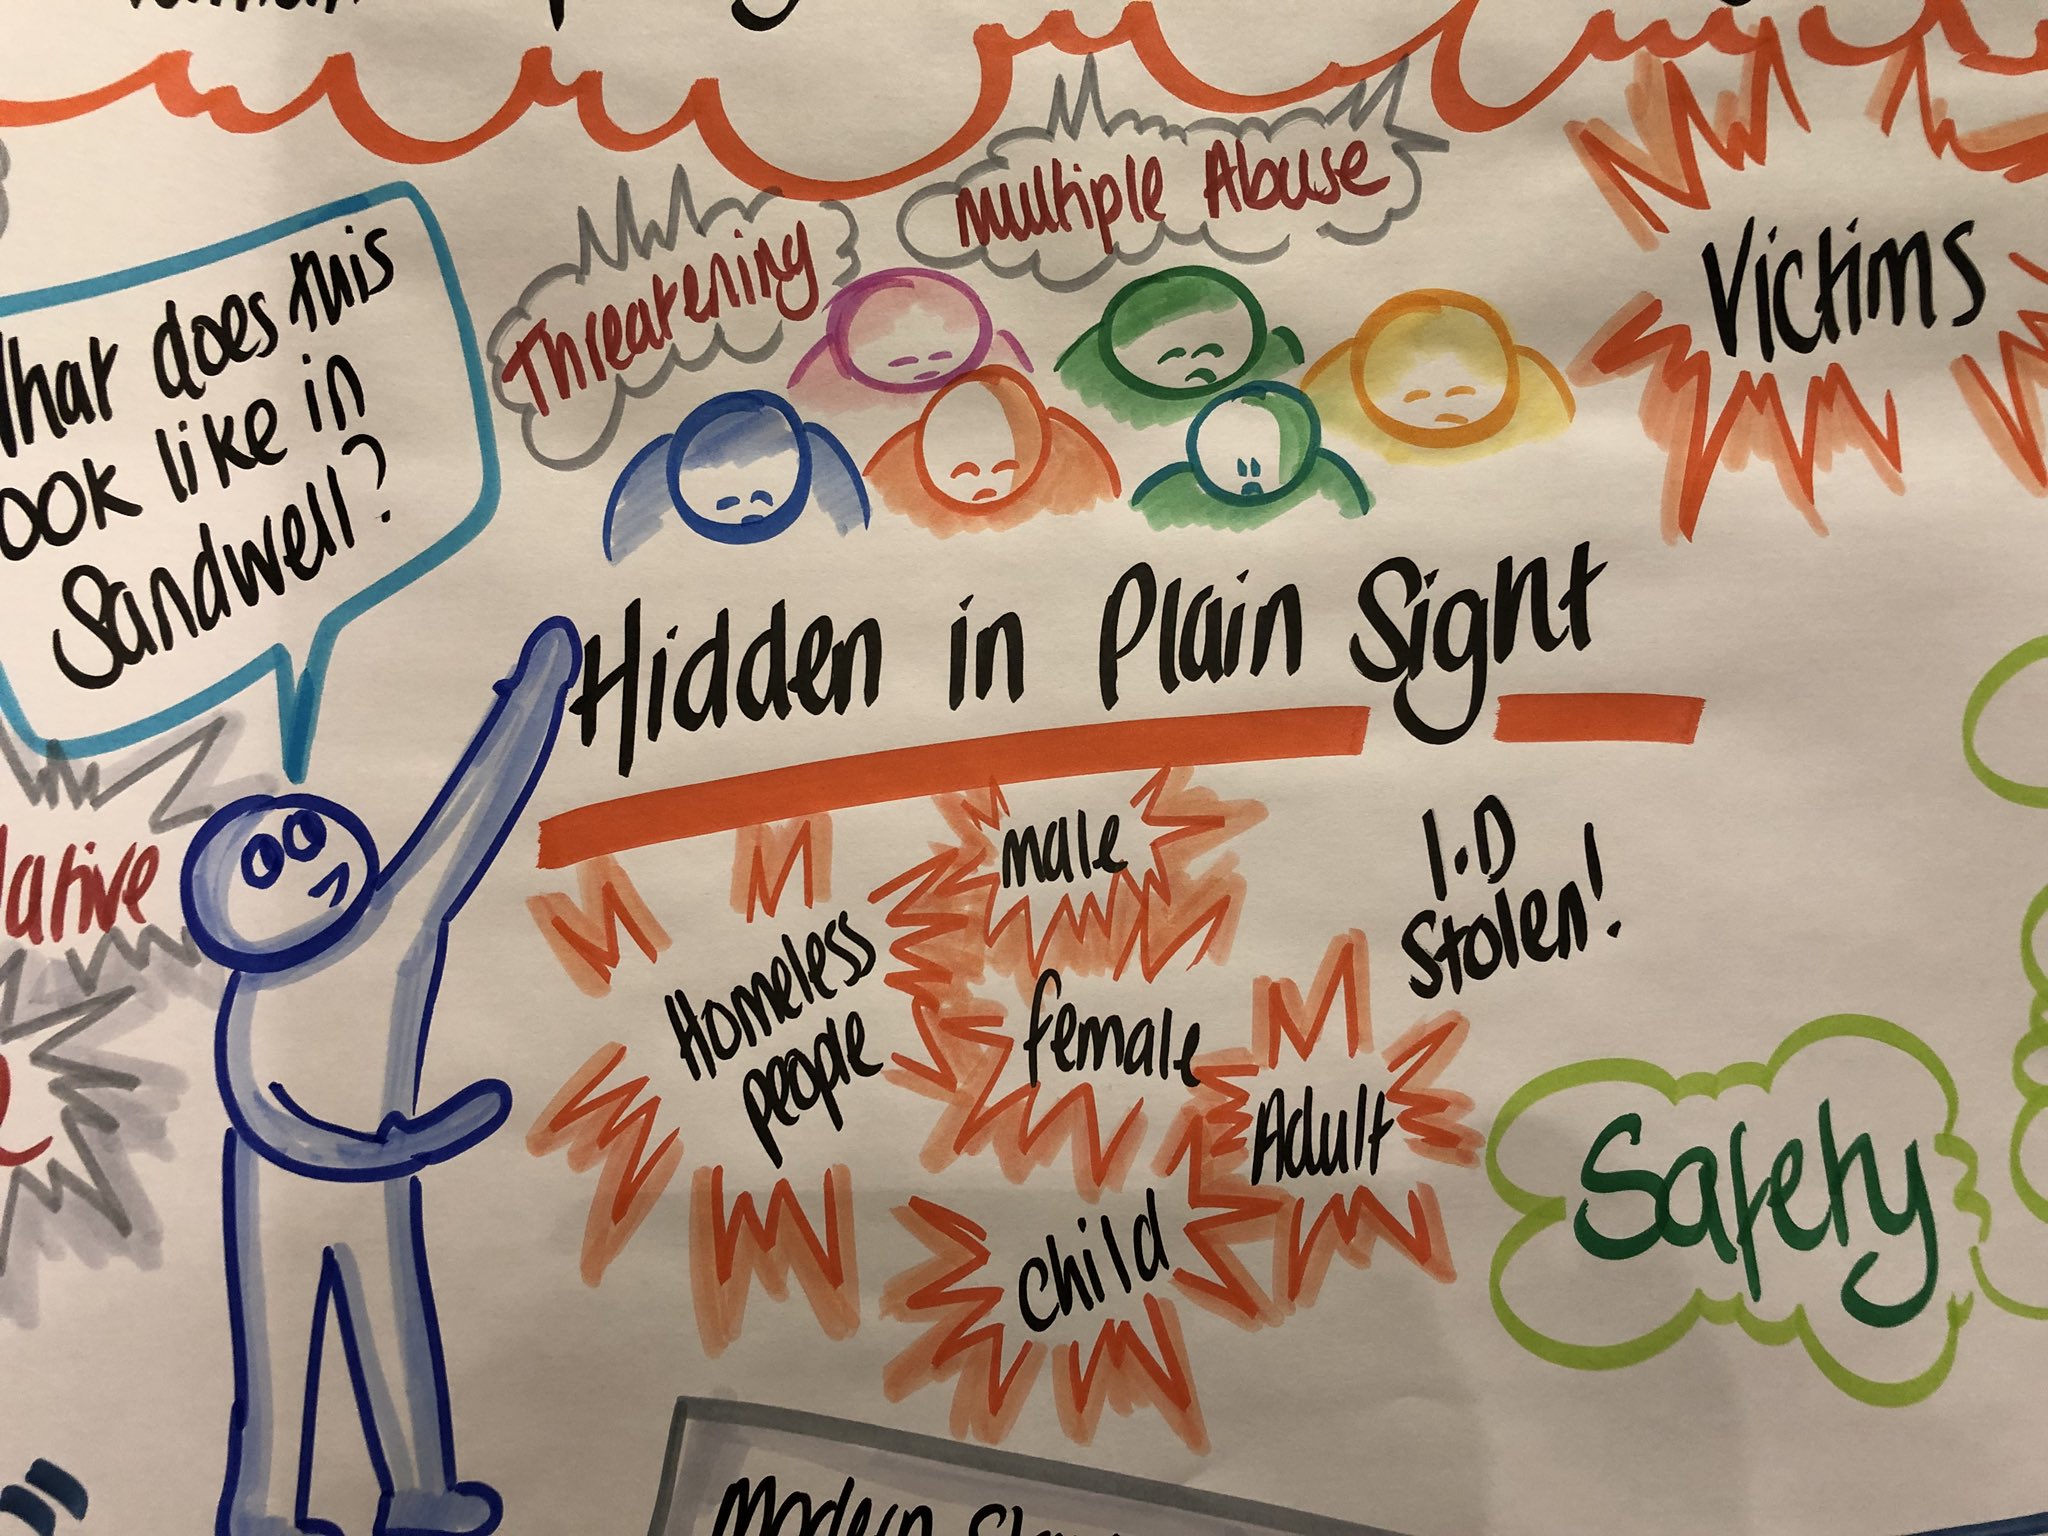 Multiple Abuse
Threatening
Victims
What does this
look like in
Sandwell?
Hidden in Plain Sight
male
I.D
Stolen!
Homeless
people
female
Adult
child
Safety
Modern